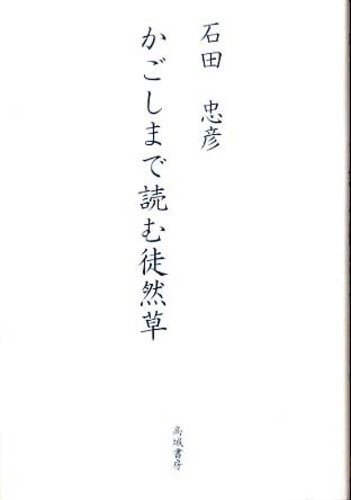 石田 忠彦
かごしまで読む徒然草
高城書房